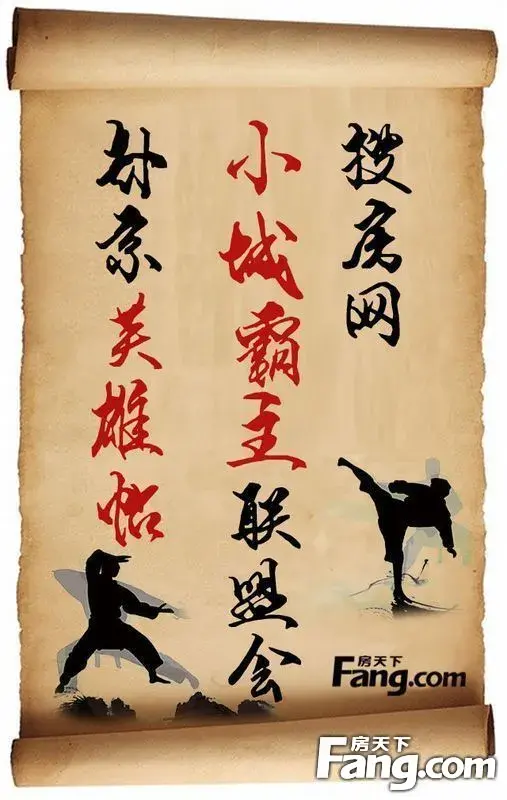 搜房网
小城霸主联盟会
英雄帖
房天下
Fang.com
房天下
Fang.com